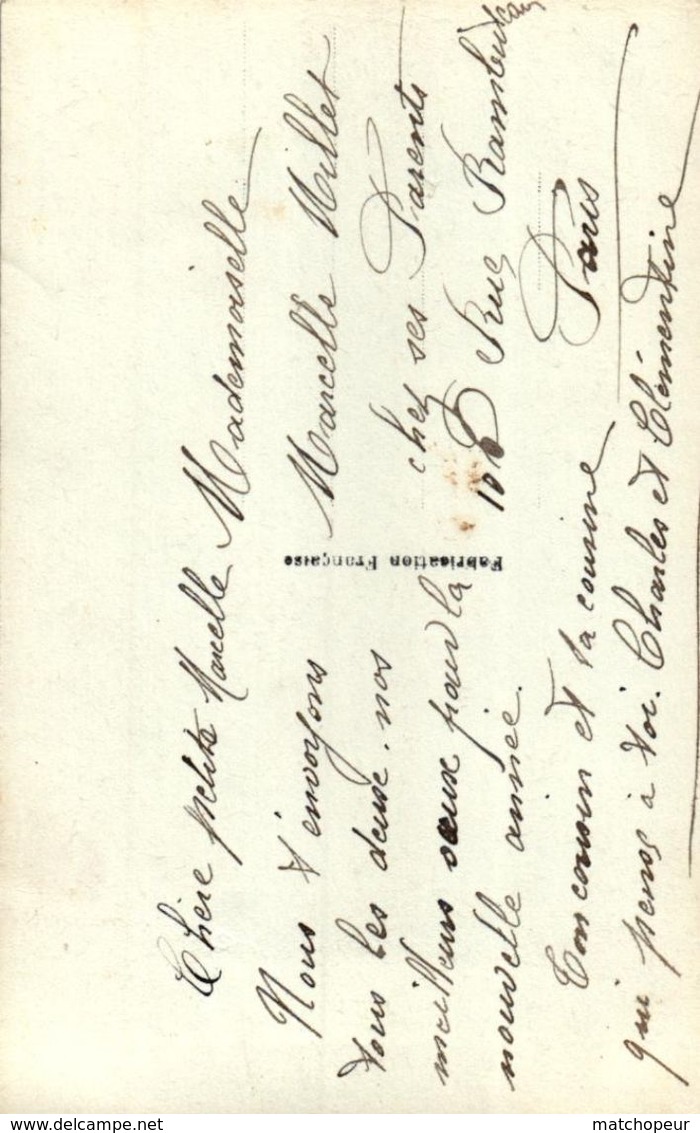 Chère petite Marcelle
Nous t'envoyons
tous les deux nos
meilleurs vœux pour la
nouvelle année.
Ton cousin et ta cousine
qui pense à toi. Charles et Clémentine
Fabrication Française
Mademoiselle
Marcelle Millet
chez ses Parents
Rue Rambuteau
Paris
delcampe.net
matchopeur